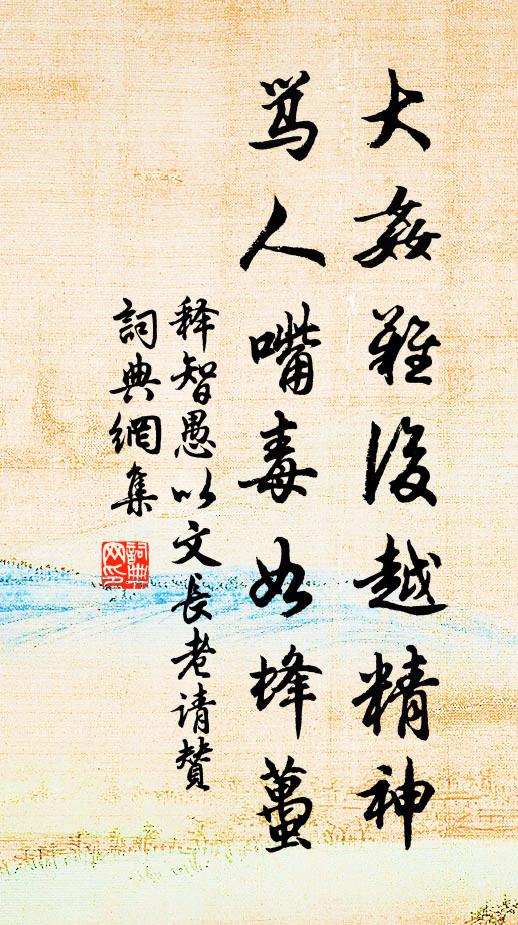 大姦難後越精神
骂人嘴毒如蜂蠆
释智愚以文長老请賛
詞典網集
詞典
网印